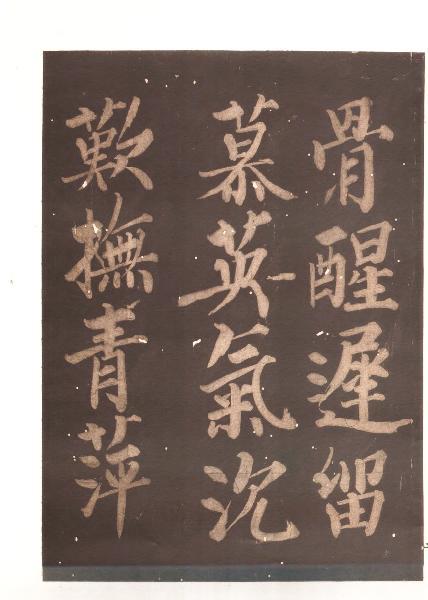 骨醒遲留
慕英氣沉
歎撫青萍